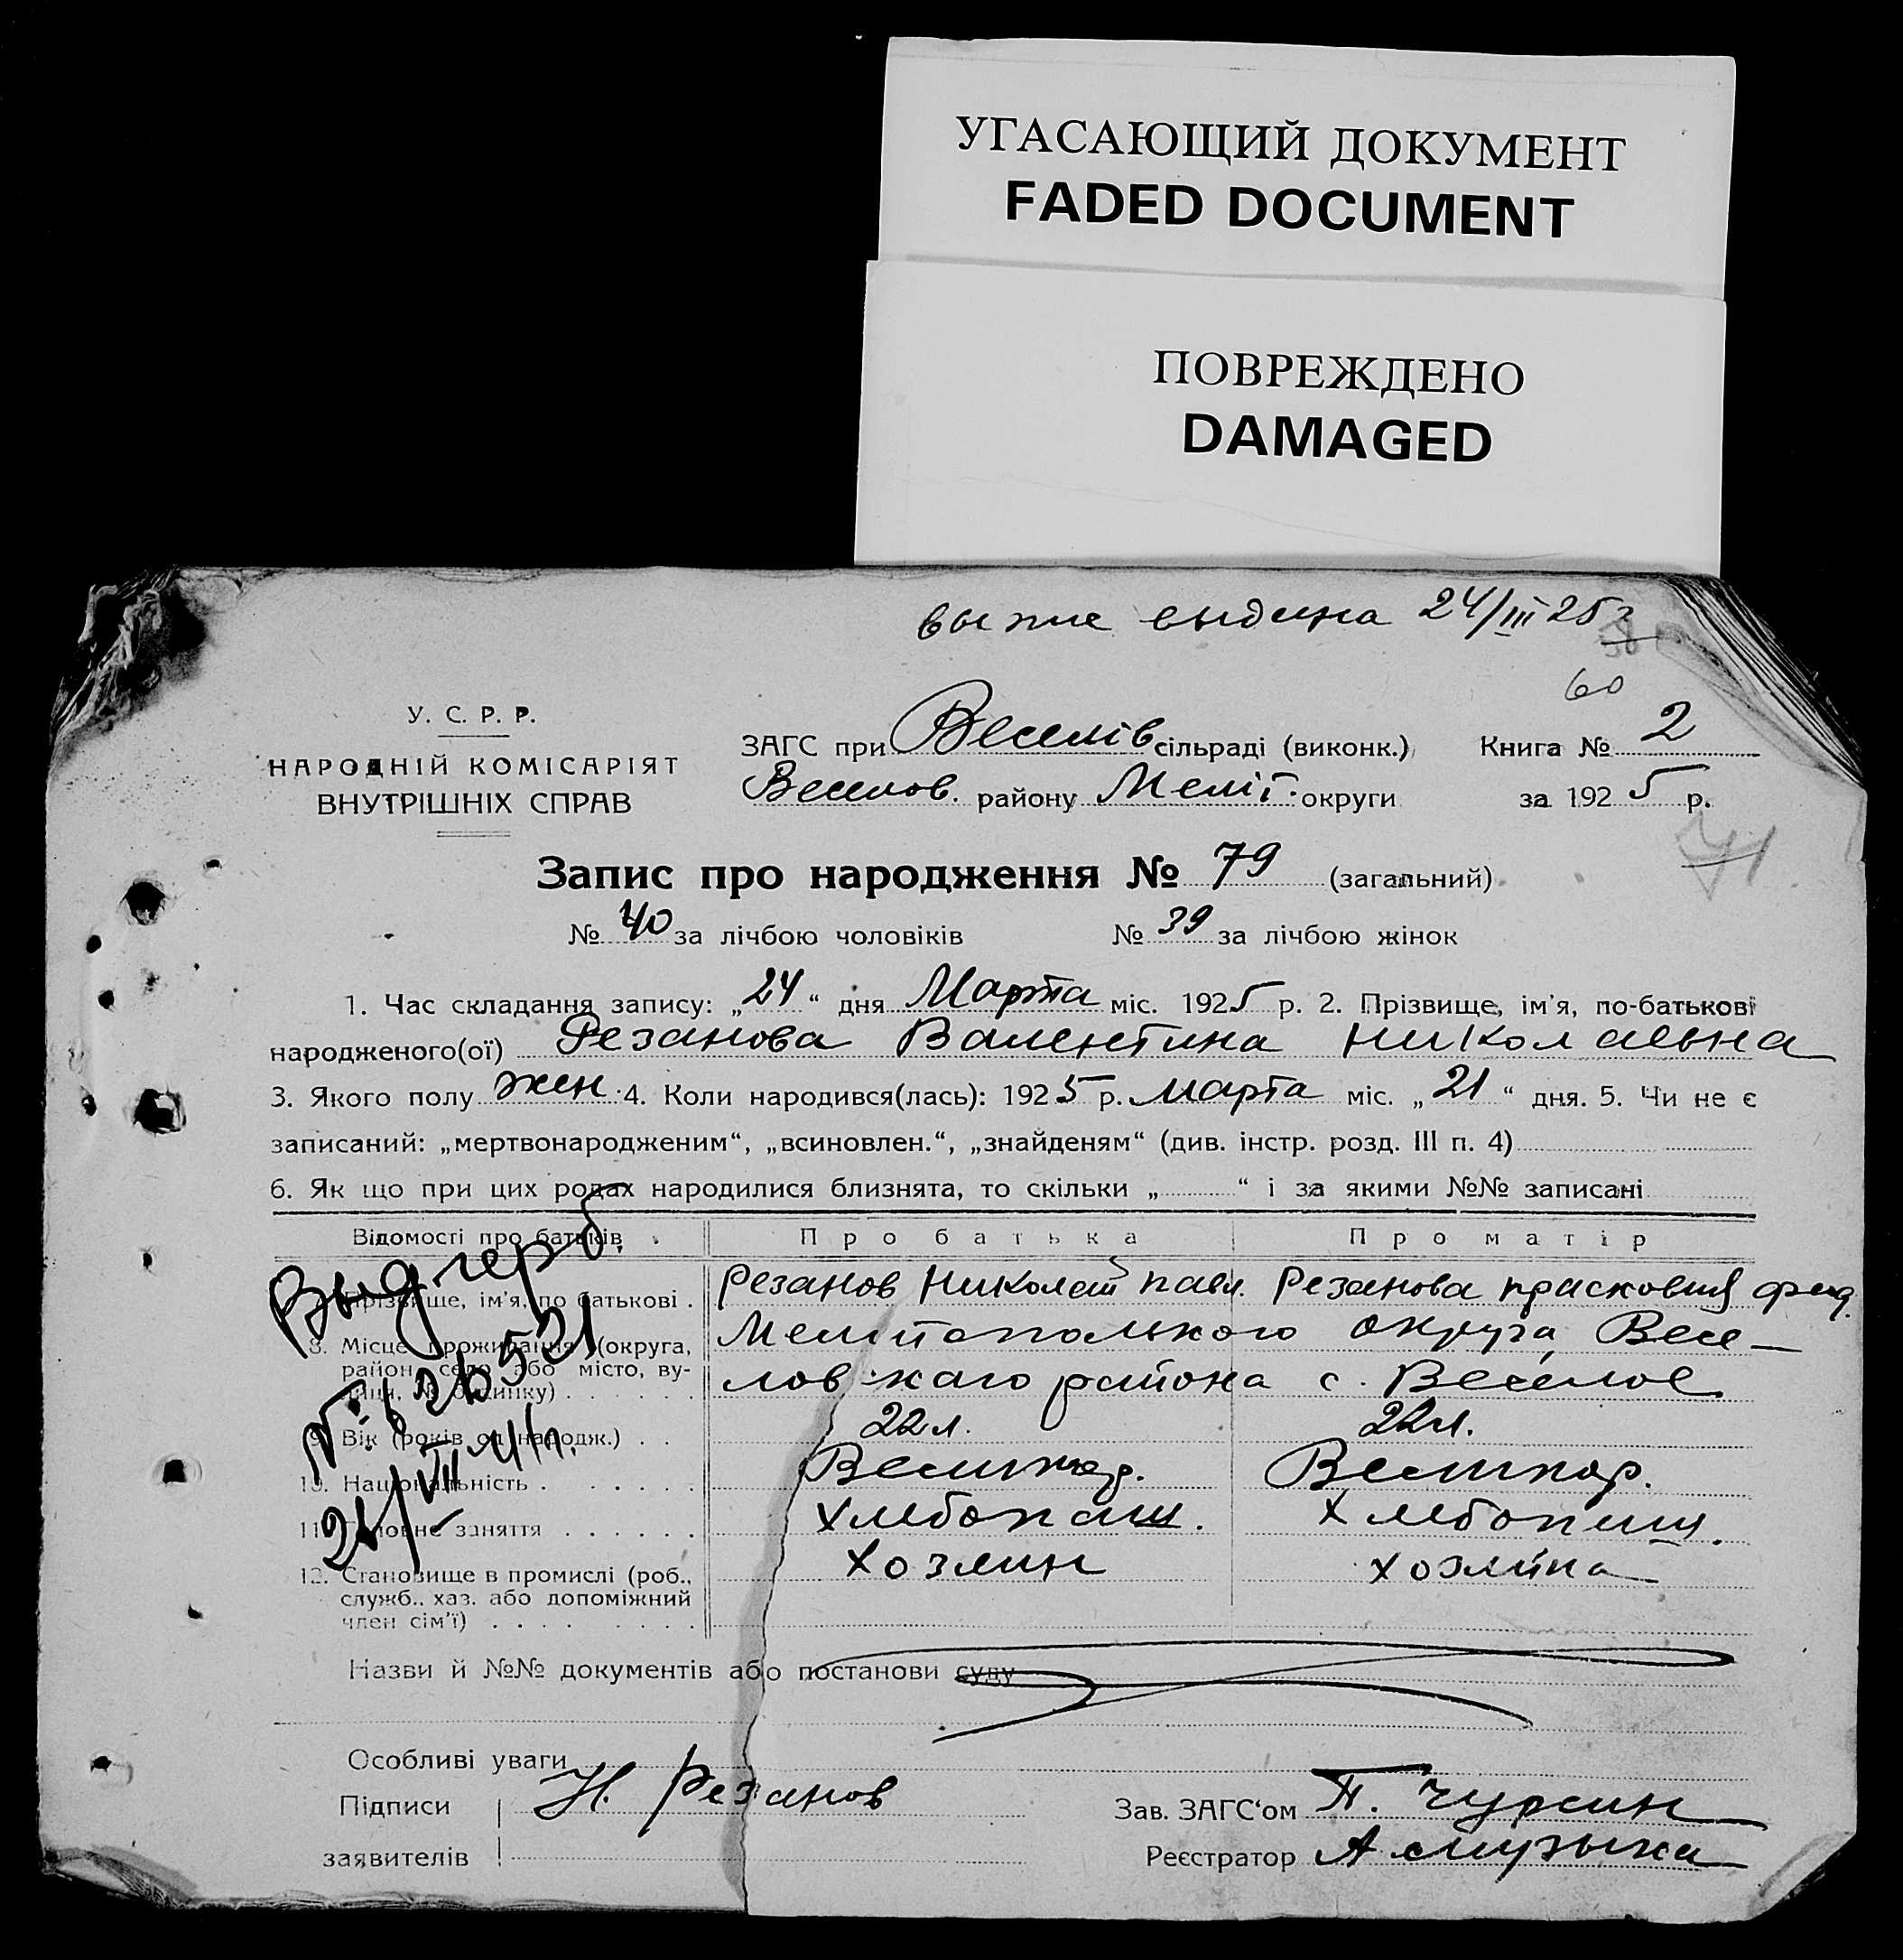 УГАСАЮЩИЙ ДОКУМЕНТ
FADED DOCUMENT
ПОВРЕЖДЕНО
DAMAGED
24/III 25 г
60
У. С. Р. Р.
НАРОДНІЙ КОМІСАРІЯТ
ВНУТРІШНІХ СПРАВ
ЗАГС при Веселів сільраді (виконк.) Книга № 2
Веселов. району Меліт. округи за 1925 р.
71
Запис про народження № 79 (загальний)
№ 40 за лічбою чоловіків № 39 за лічбою жінок
1. Час складання запису: „24“ дня Марта міс. 1925 р. 2. Прізвище, ім'я, по-батькові
народженого(ої) Резанова Валентина Николаевна
3. Якого полу жен. 4. Коли народився(лась): 1925 р. марта міс. „21“ дня. 5. Чи не є
записаний: „мертвонародженим“, „всиновлен.“, „знайденям“ (див. інстр. розд. III п. 4)
6. Як що при цих родах народилися близнята, то скільки „ “ і за якими №№ записані
Відомості про батьків. Про батька Про матір
Прізвище, ім'я, по батькові . Резанов Николай павл. Резанова прасковия фед.
8. Місце проживання (округа, Мелитопольского округа, Весе-
район, село або місто, ву- ловскаго района с. Веселое
лиця, № будинку)
9. Вік (років од народж.) . . 22 л. 22 л.
10. Національність . Великор. Великор.
11. Головне заняття Хлебопаш. Хлебопаш.
12. Становище в промислі (роб., Хозяин хозяйка
служб., хаз. або допоміжний
член сім'ї)
Назви й №№ документів або постанови суду
Особливі уваги
Підписи Н. Резанов Зав. ЗАГС'ом П. Чурсин
заявителів Реєстратор А Музыка